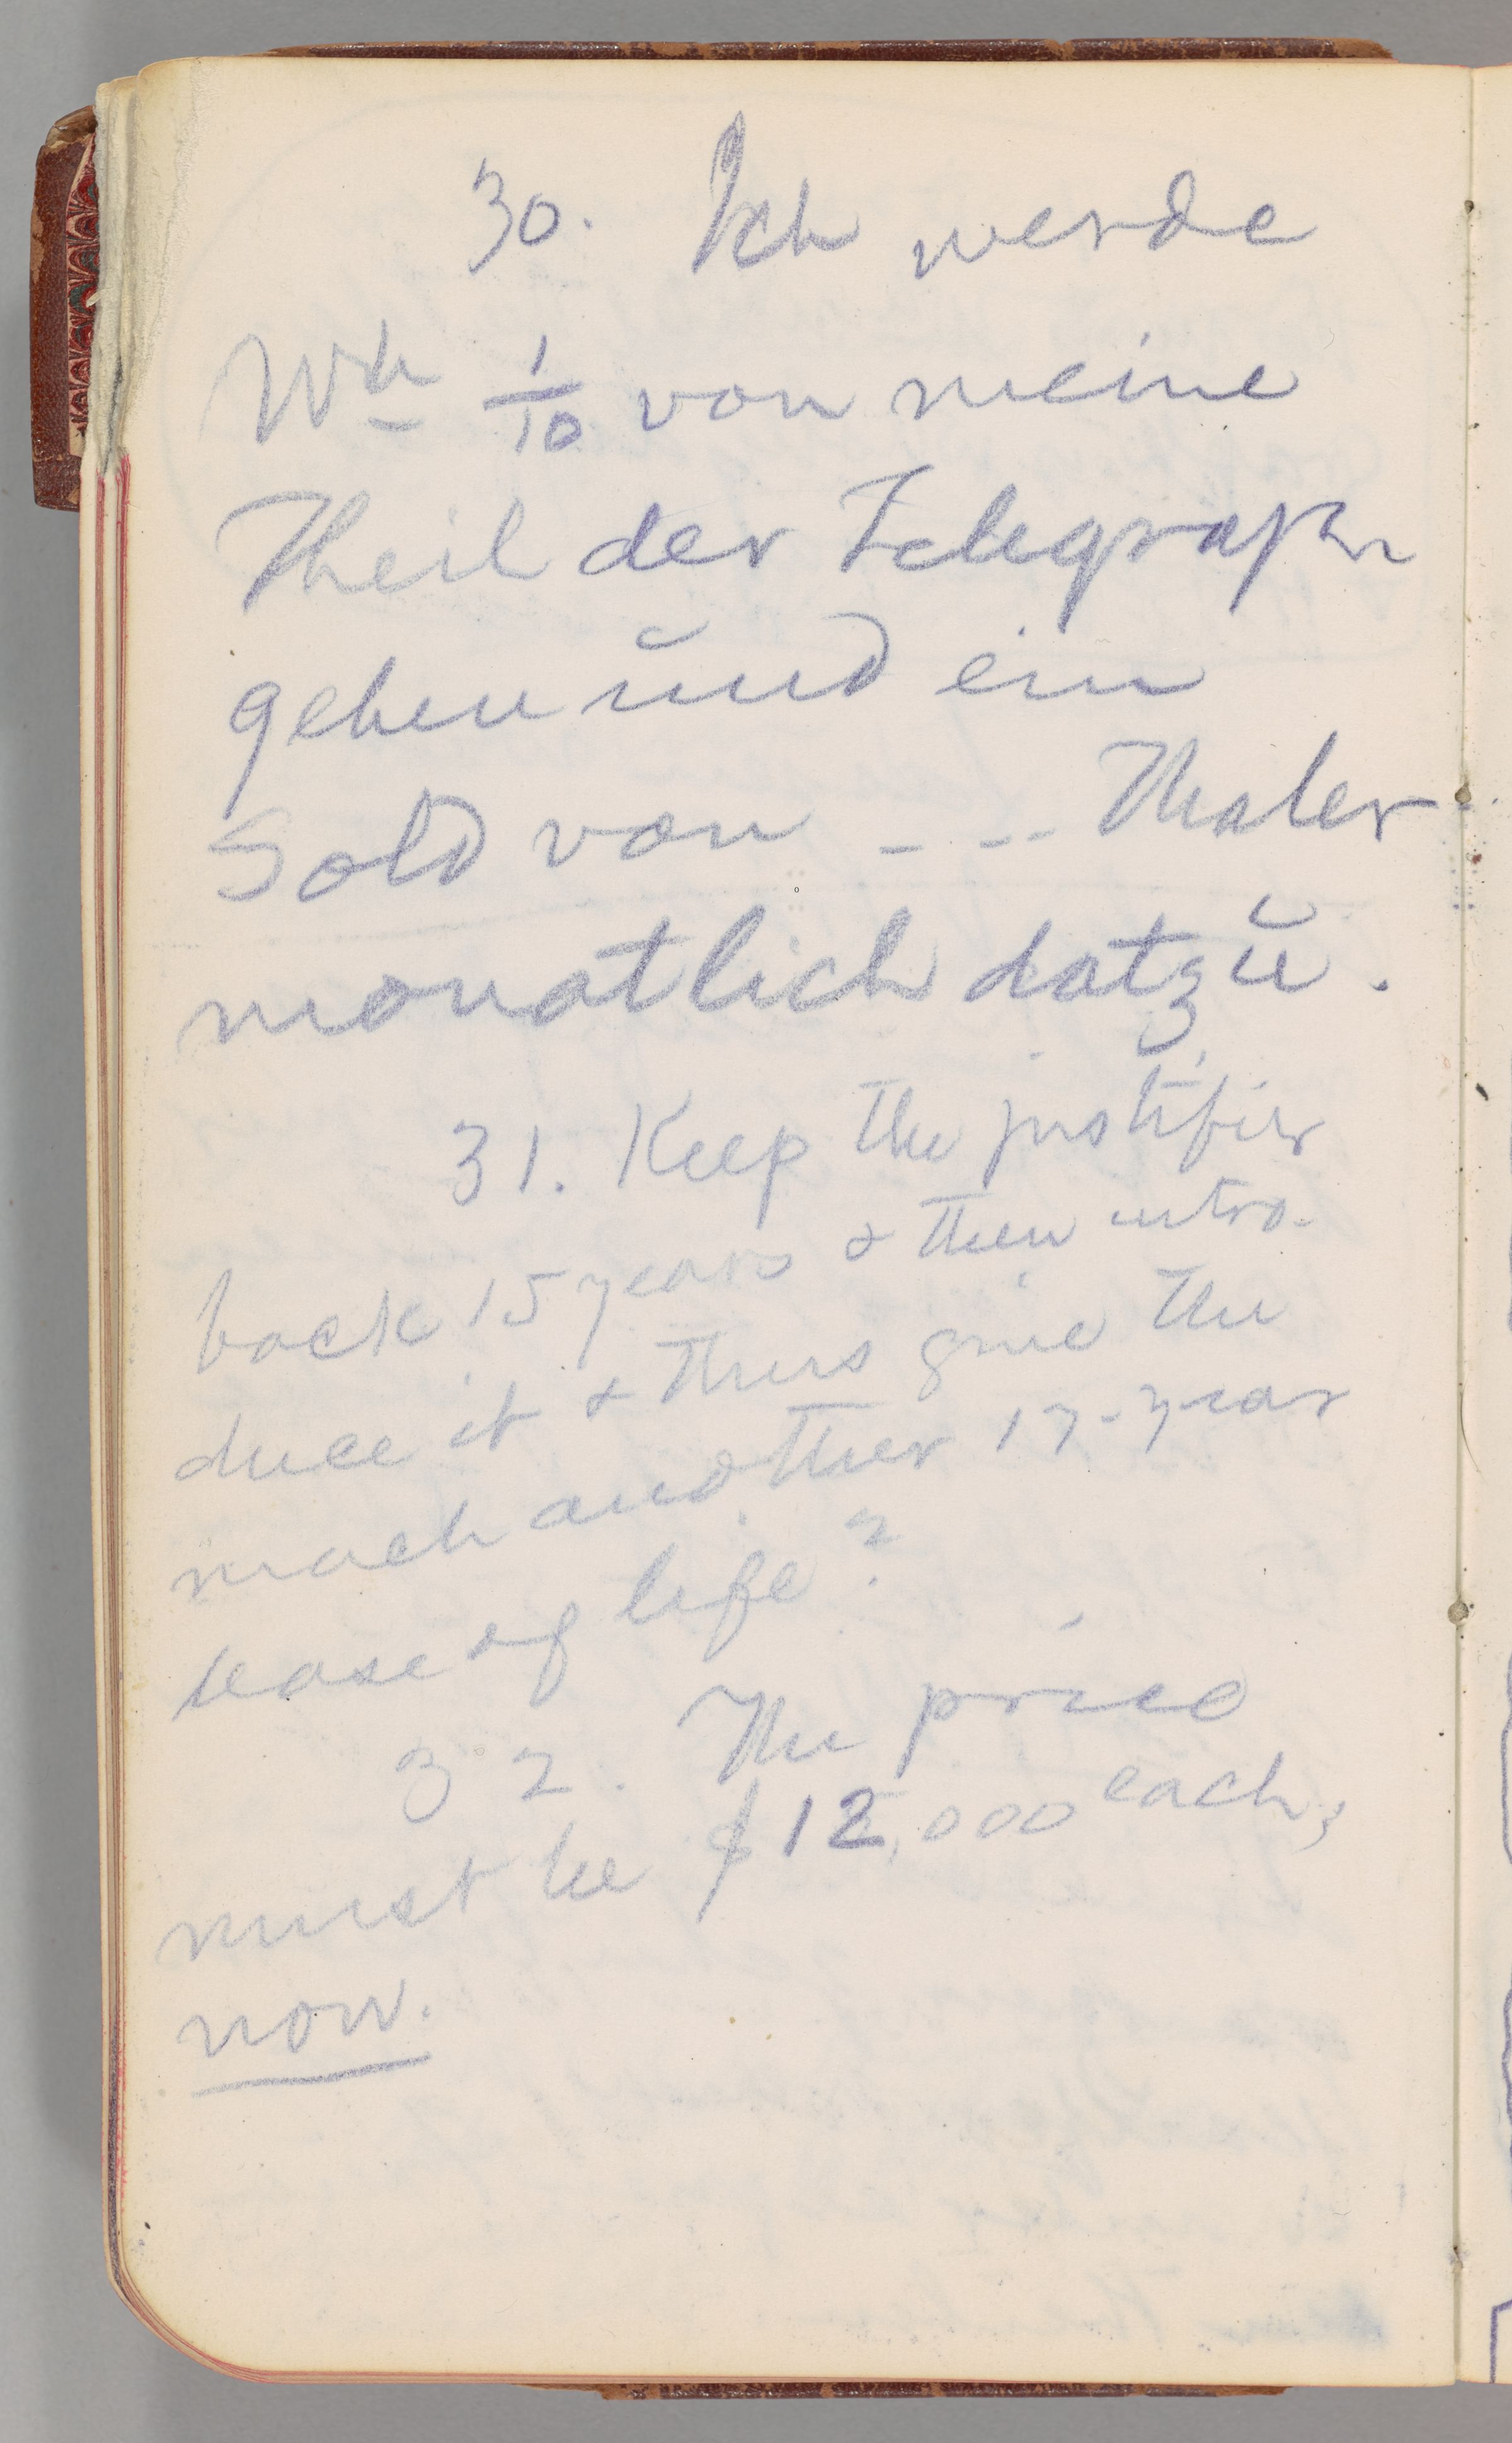 30. Ich werde
Wh 1/10 von meine
Theil der Telegraph
geben ŭnd ein
Sold von _ _ _ Thaler
monatlich datzŭ.
31. Keep the justifier
back 15 years & then intro-
duce it & thus give the
mach another 17-year
lease of life?
32. The price
must be $12,000 each,
now.